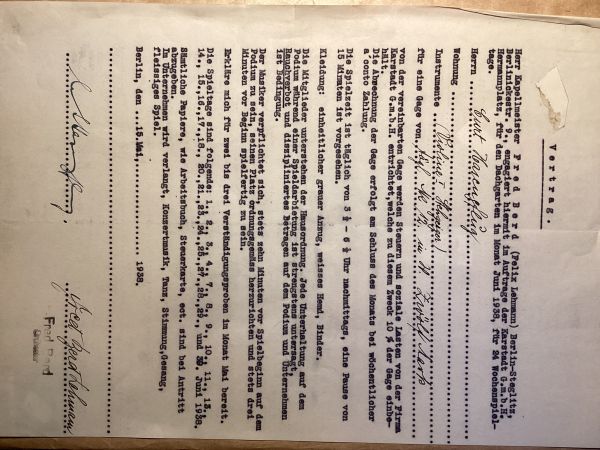 Vertrag.
Herr Kapellmeister Fred Berd (Felix Lehmann) Berlin-Steglitz,
Berlinickestr. 9., engagiert hiermit im Auftrage der Karstadt G.m.b.H.
Hermannplatz, für den Dachgarten im Monat Juni 1938, für 24 Wochenspiel-
tage.
Herrn
Wohnung
Instrumente
für eine Gage von
von der vereinbarten Gage werden Steuern und soziale Lasten von der Firma
Karstadt G.m.b.H. entrichtet, welche zu diesem zweck 10 % der Gage einbe-
hält.
Die Abrechnung der Gage erfolgt am Schluss des Monats bei wöchentlicher
a conto Zahlung.
Die Spielzeit ist täglich von 3 ½ - 6 ½ Uhr nachmittags, eine Pause von
15 Minuten ist vorgesehen.
Kleidung: einheitlicher grauer Anzug, weisses Hemd, Binder.
Die Mitglieder unterstehen der Hausordnung. Jede Unterhaltung auf dem
Podium während einer Spieldarbietung ist strengstens untersagt
Rauchverbot und diszipliniertes Betragen auf dem Podium und Unternehmen
ist Bedingung.
Der Musiker verpflichtet sich, stets zehn Minuten vor Spielbeginn auf dem
Podium zu sein, seinen Platz ordnungsgemäss herzurichten und stets drei
Minuten vor Beginn spielfertig zu sein.
Erkläre mich für zwei bis drei Verständigungsproben im Monat Mai bereit.
Die Spieltage sind folgende: 1. 2. 3. 4. 7. 8., 9., 10., 11., 13.,
14., 15., 16., 17., 18., 20., 21., 23., 24., 25., 27., 28., 29., und 30. Juni 1938.
Sämtliche Papiere, wie Arbeitsbuch, Steuerkarte, ect sind bei Antritt
abzugeben.
Im Unternehmen wird verlangt, Konzertmusik, Tanz, Stimmung, Gesang,
fleissiges Spiel.
Berlin, den 15. Mai, 1938.
Fred Berd Lehmann.
Fred Berd